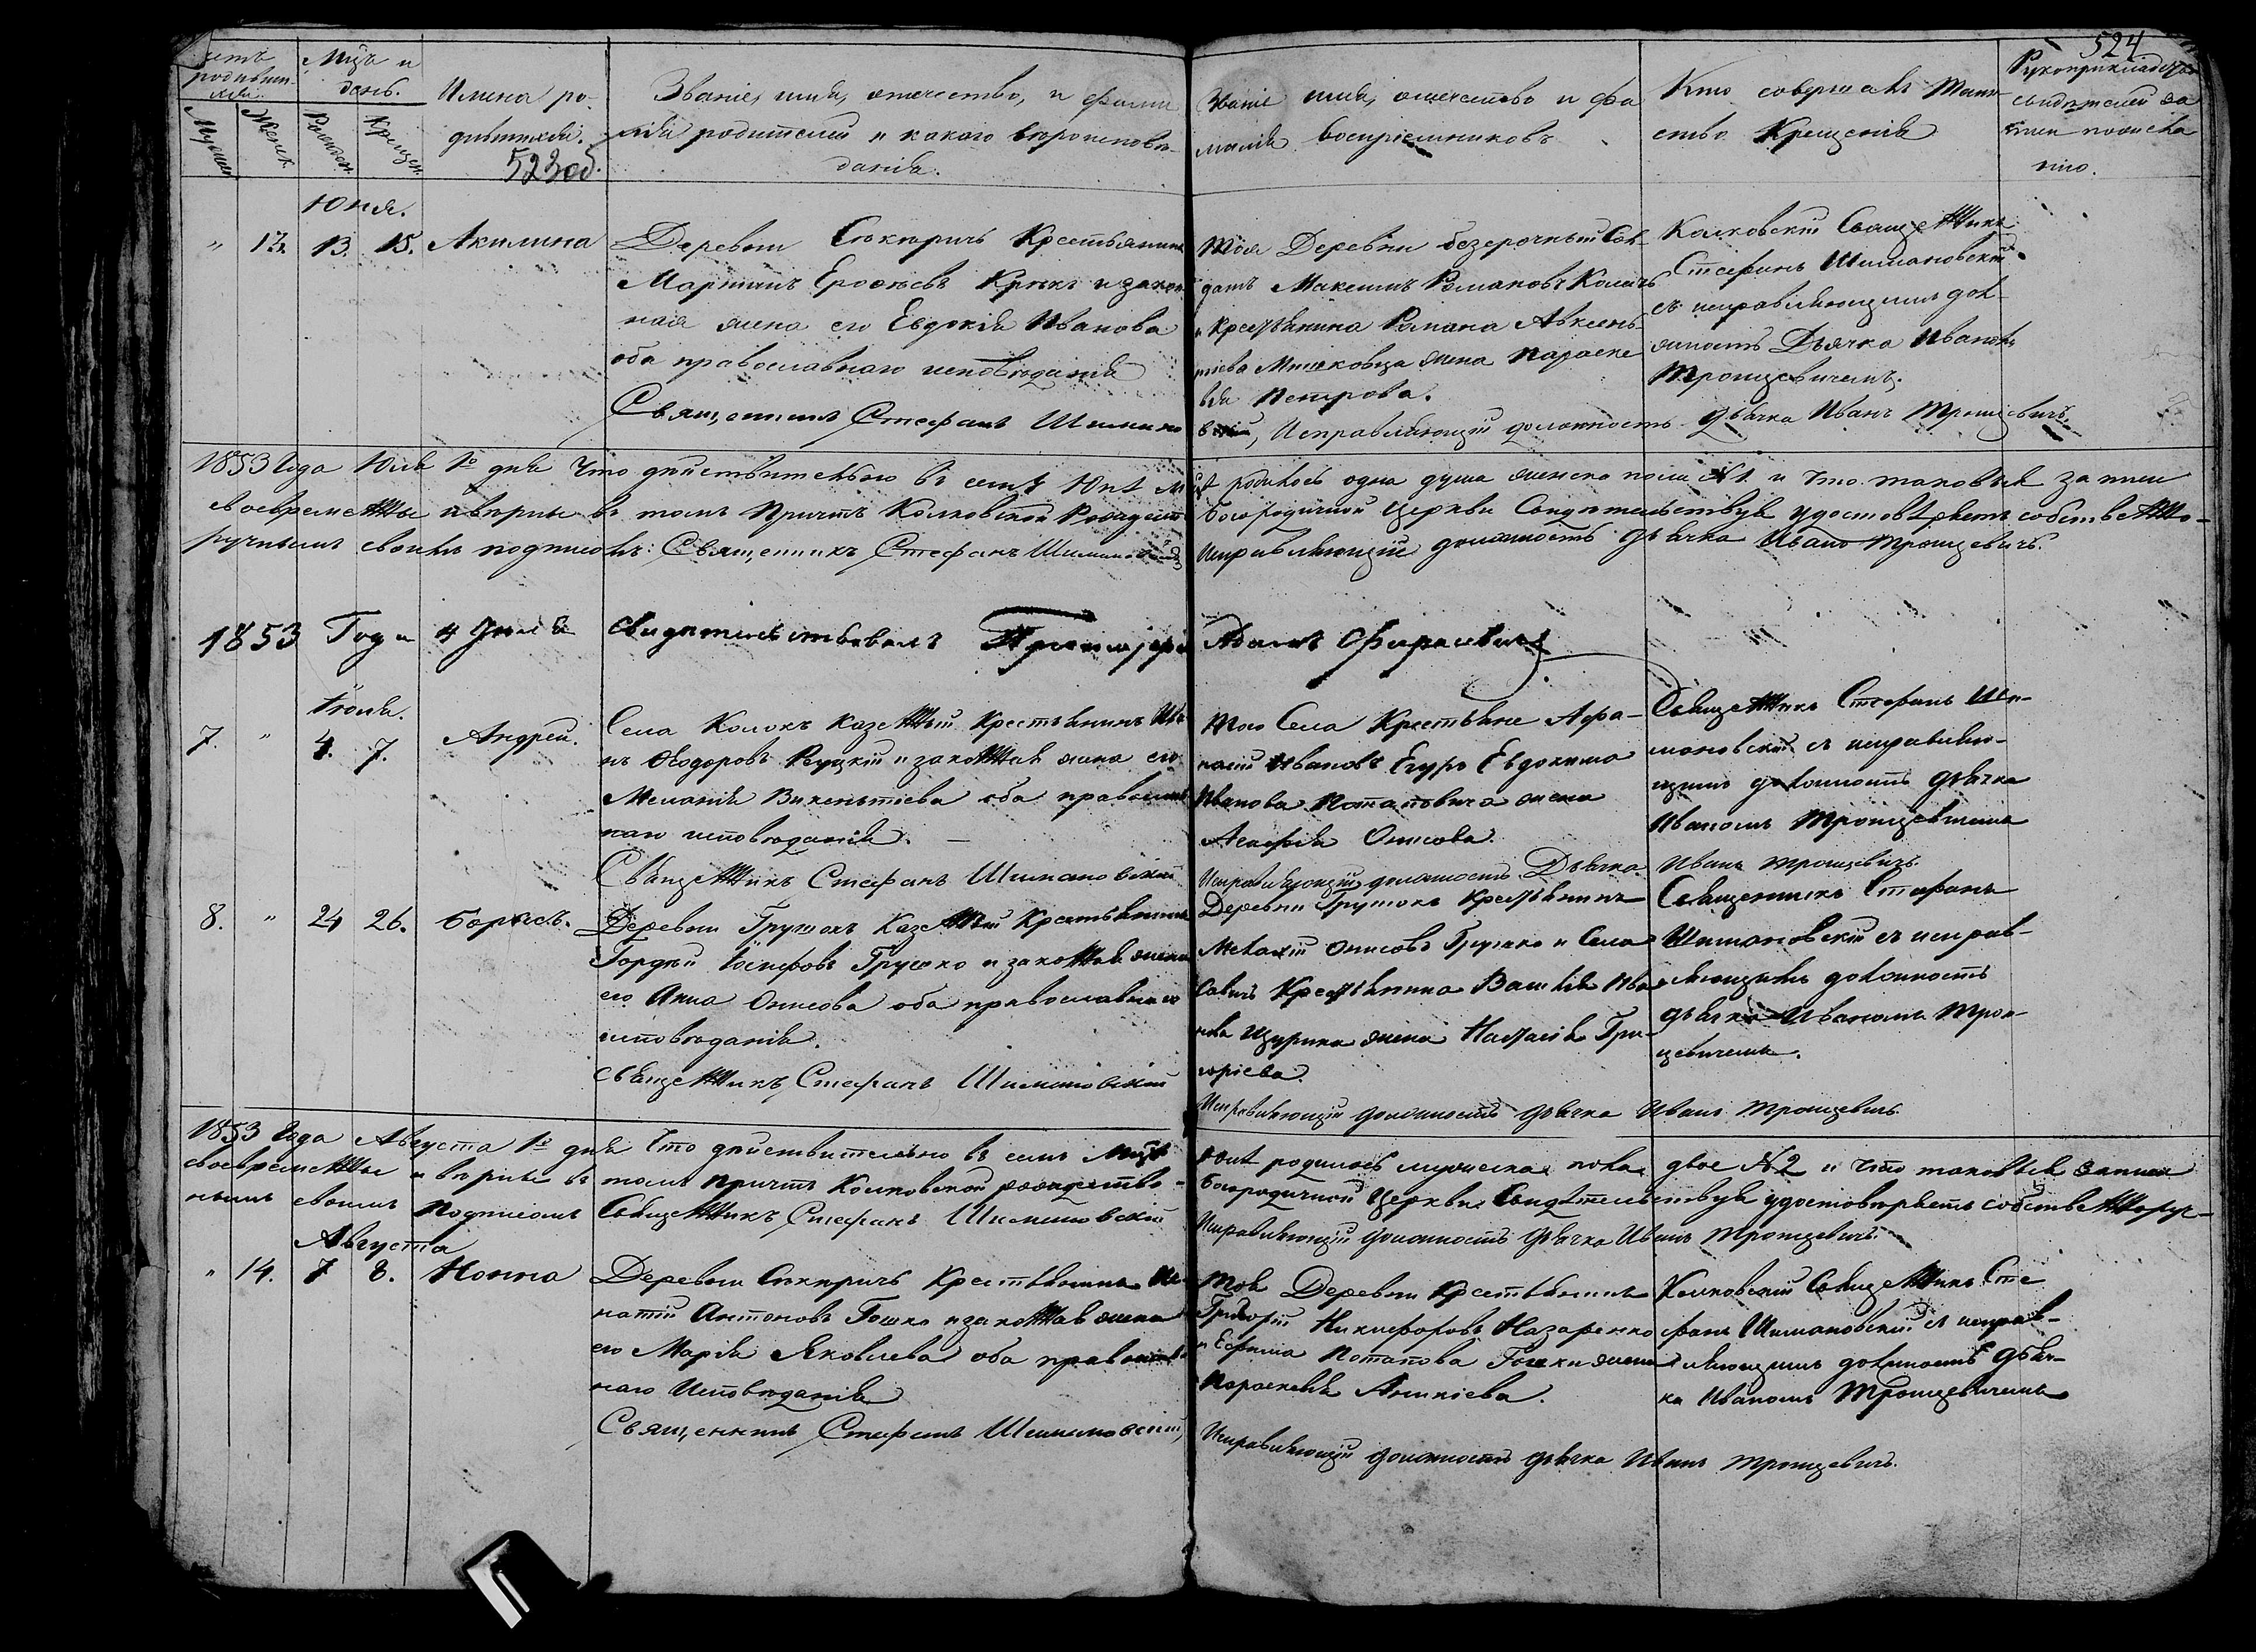 524
523об.
Счетъ родившихся
Мцъ и день.
Имена родившихся.
Званіе, имя, отечество, и фамилія родителей и какаго вѣроисповѣданія.
Званіе имя, отечество и фамилія воспріемниковъ
Кто совершалъ таинство Крещенія
Рукоприкладство свидѣтелей записи по желанію.
Мужеск
Женск
Рожден
Крещен
Юня.
" 13. 13. 15. Акилина
Деревни Крестьянинъ
Мартинъ Ерофѣевъ Крукъ и закон
ная жена его Евдокія Иванова
оба православнаго исповѣданія
Священникъ Стефанъ Шимано
Тоя Деревни безсрочный Сол
датъ Максимъ Романовъ
и Крестьянина Романа Авксень
тіева жена Параске
вія Петрова.
вскій, Исправляющій должность дьячка Иванъ Трощевичъ
Колковскій Священникъ
Стефанъ Шимановскій
съ исправляющимъ дол
жность Дьячка Иваномъ
Трощевичемъ.
1853 года Юля 1го дня Что дѣйствительно въ семъ Юнѣ мцѣ родилось одна душа женска пола №1. и что таковыя записи
своевременны и вѣрны въ томъ Причтъ Колковской Рождество Богородичной Церкви Свидѣтельствуя удостовѣряетъ собственно-
ручнымъ своимъ подписомъ: Священникъ Стефанъ Шимановскій Исправляющій должность дьячка Иванъ Трощевичъ.
1853 Года 4 Июля свидѣтельствовалъ Протоіерей Адамъ
Іюля.
7. " 4. 7. Андрей.
Села Колокъ казенный Крестьянинъ Ива
нъ Ѳеодоровъ и законная жена его
Меланія Викентіева оба православ
наго исповѣданія. —
Священникъ Стефанъ Шимановскій
Того Села Крестьяне Афа-
насій Ивановъ Евдокима
Иванова Потаповича жена
Агафія Онисова.
Исправляющій должность Дьячка Иванъ Трощевичъ
Священникъ Стефанъ Ши-
мановскій съ исправляю-
щимъ должность дьячка
Иваномъ Трощевичемъ
8. " 24 26. Борисъ.
Деревни Грушокъ Казенный Крестьянинъ
Гордѣй Іосифовъ Грушко и законная жена
его Анна Онисова оба православнаго
исповѣданія.
Священникъ Стефанъ Шимановскій
Деревни Грушокъ Крестьянинъ
Онисовъ Грушко и Села
Крестьянина Василія Ива
нова жена Наталія Гри-
горіева.
Исправляющій должность дьячка Иванъ Трощевичъ
Священникъ Стефанъ
Шимановскій съ исправ-
ляющимъ должность
дьячка Иваномъ Тро-
щевичемъ.
1853 года Августа 1го дня Что дѣйствительно въ семъ Мцѣ Юлѣ родилось мужеска пола двое №2 и что таковыя записи
своевременны и вѣрны въ томъ Причтъ Колковской рождество-Богородичной Церкви Свидѣтельствуя удостовѣряетъ собственноруч-
нымъ своимъ подписомъ Священникъ Стефанъ Шимановскій Исправляющій должность дьячка Иванъ Трощевичъ
Августа
" 14. 7 8. Нонна
Деревни Крестьянинъ Иг
натій Антоновъ Гошко и законная жена
его Марія Яковлева оба православ
наго Исповѣданія
Священникъ Стефанъ Шимановскій,
Тоя Деревни Крестьянинъ
Григорій Никифоровъ Назаренко
и Ефима Потапова Гошки жена
Параскевія Аникіева.
Исправляющій должность дьячка Иванъ Трощевичъ.
Колковскій Священникъ Сте
фанъ Шимановскій съ исправ-
ляющимъ должность дьяч-
ка Иваномъ Трощевичемъ